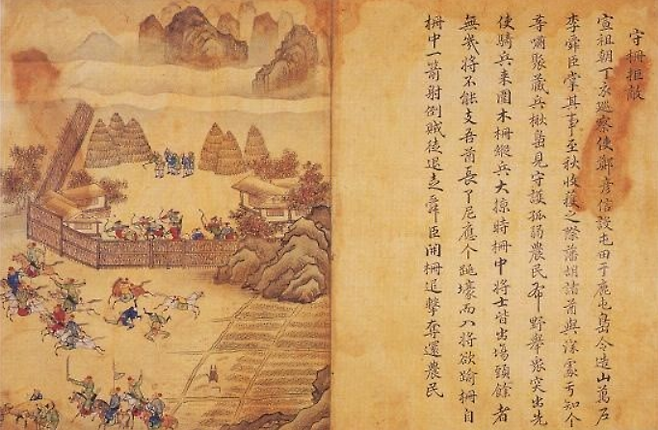 守柵拒敵
宣祖朝丁亥巡察使鄭彦信設屯田于鹿屯島令造山萬戶
李舜臣掌其事至秋收穫之際藩胡諸酋與深處亏知介
等嘯聚藏兵楸島見守護孤弱農民布野擧衆突出先
使騎兵來圍木柵縱兵大掠時柵中將士皆出場頭餘者
無幾將不能支吾酋長了尼應个跳壕而入將欲踰柵自
柵中一箭射倒賊徒退走舜臣開柵追擊奪還農民